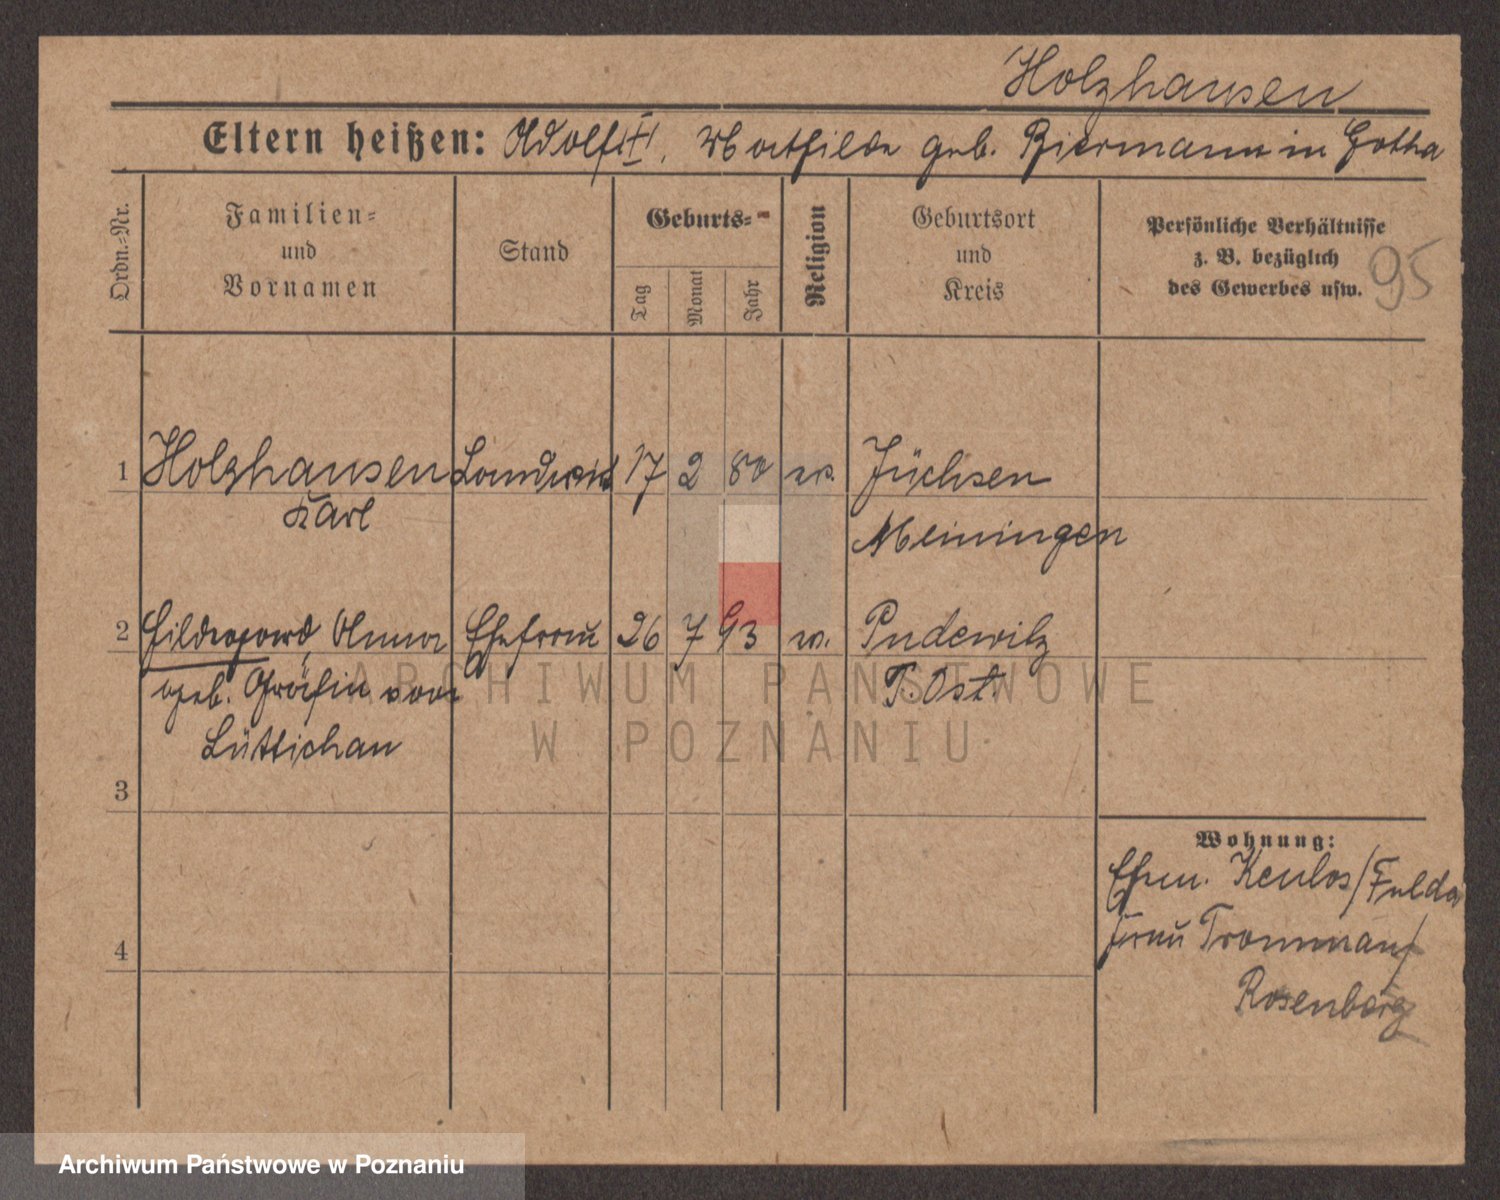 Holzhausen
Eltern heißen: Adolf (†), Mathilde geb. Biermann in Gotha
Ordn.=Nr.
Familien=
und
Vornamen
Stand
Geburts=
Tag
Monat
Jahr
Religion
Geburtsort
und
Kreis
Persönliche Verhältnisse
z. B. bezüglich
des Gewerbes usw.
95
1 Holzhausen Landwirt 17 2 80 ev. Jüchsen
Karl
Meiningen
2 Hildegard, Anna Ehefrau 26 7 93 ev. Pudewitz
geb. Gräfin von P. Ost.
Lüttichau
3
Wohnung:
Ehem. /Fulda
Frau
4
Rosenberg
ARCHIWUM PAŃSTWOWE
W POZNANIU
Archiwum Państwowe w Poznaniu